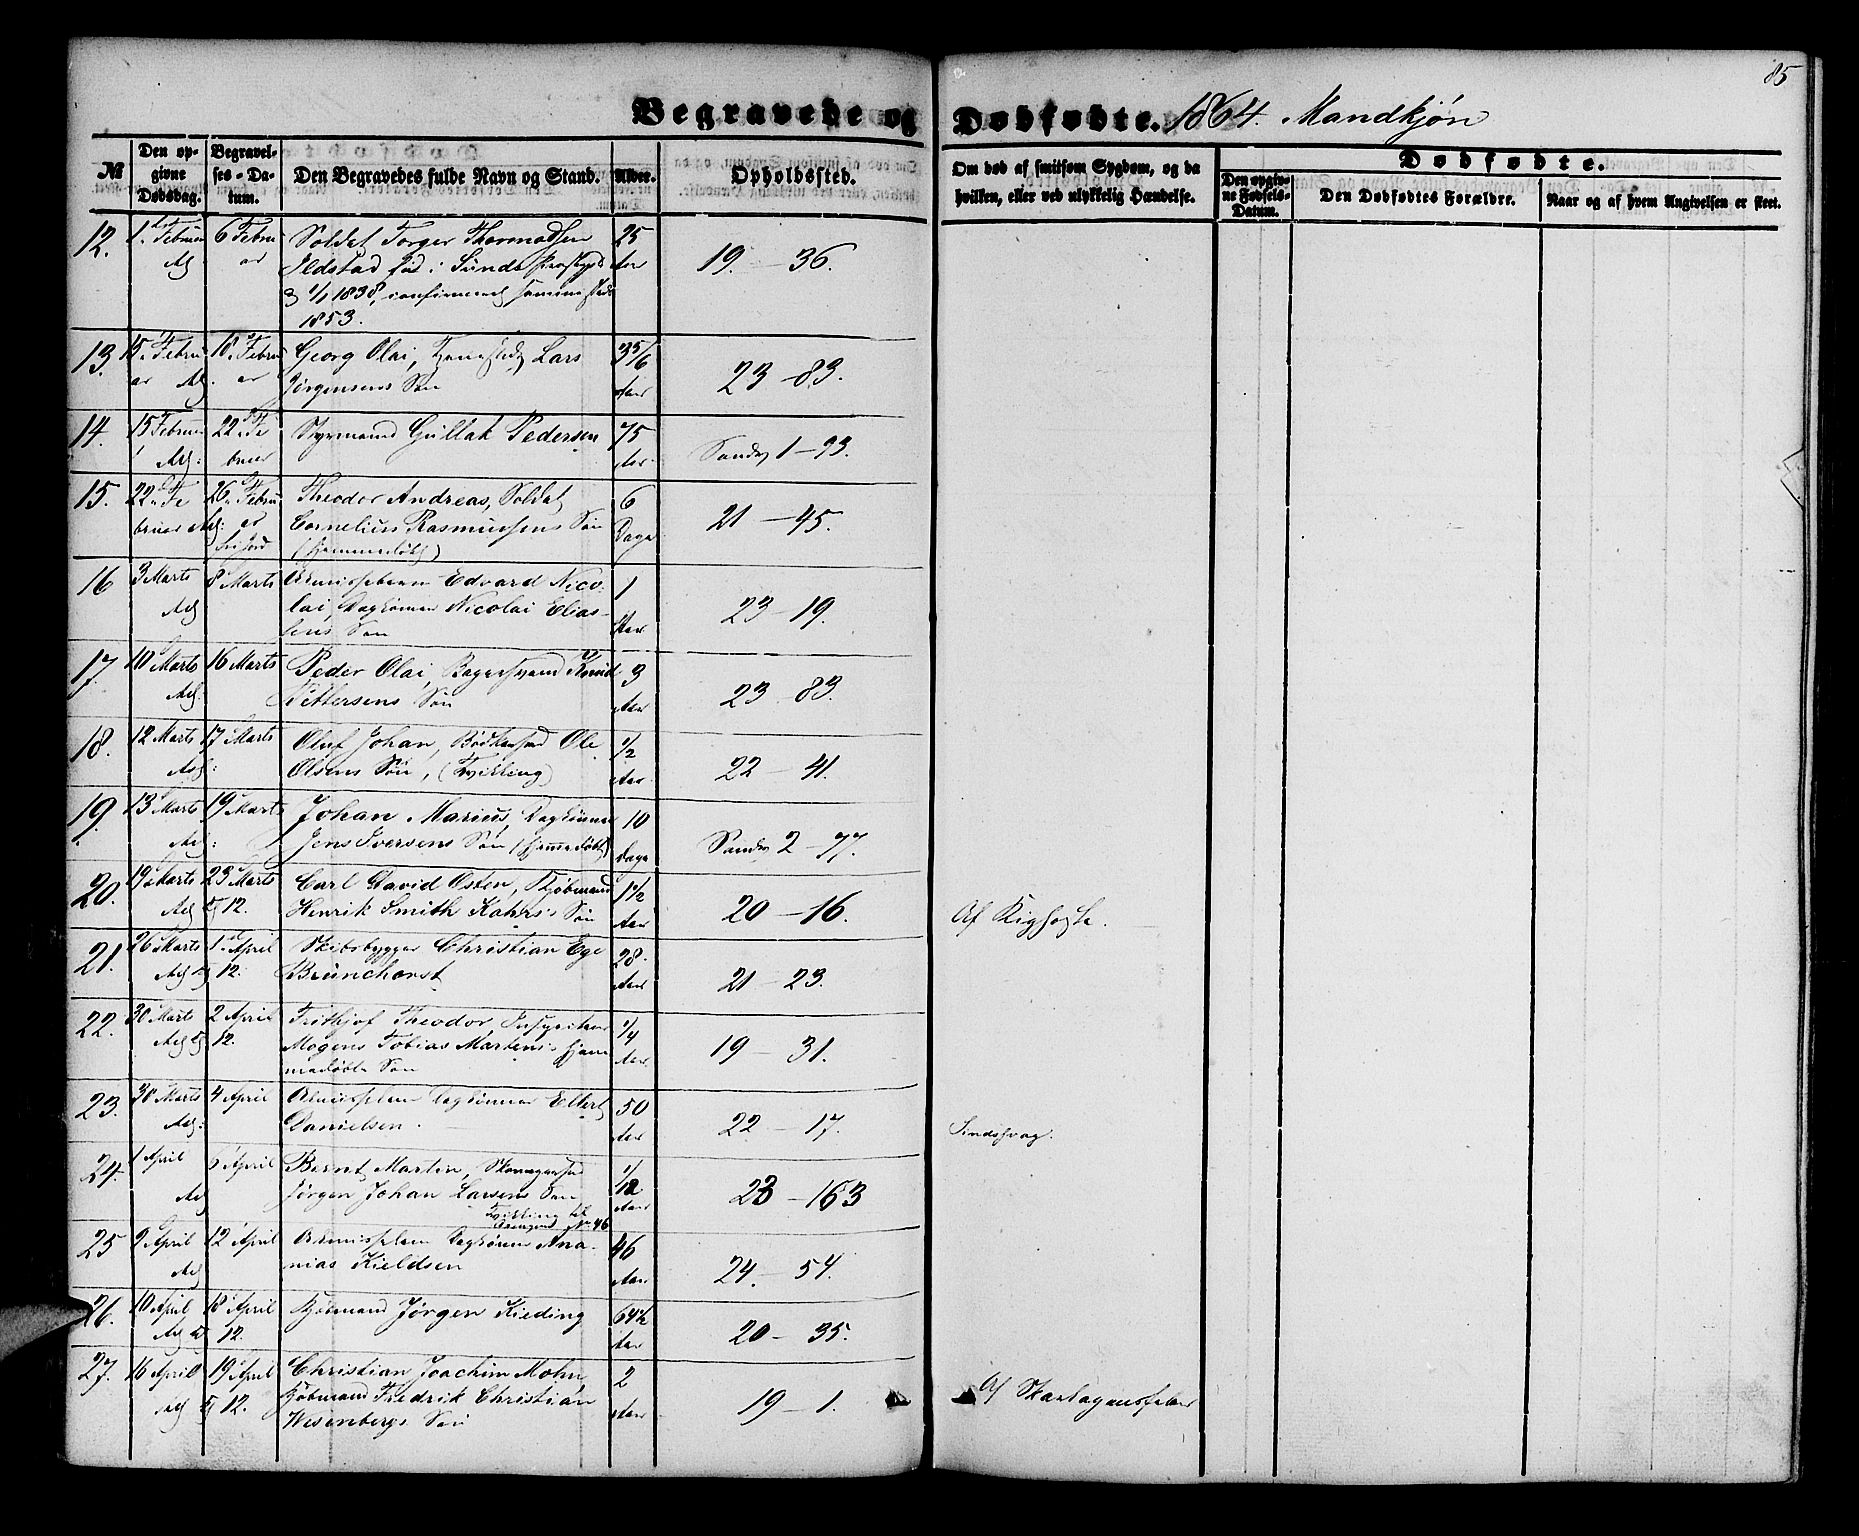 85
Begravede og Dødfødte. 1864. Mandkjøn
№
Den opgivne Dødsdag.
Begravelses-Datum.
Den Begravedes fulde Navn og Stand.
Alder.
Opholdssted.
Om død af smitsom Sygdom, og da hvilken, eller ved ulykkelig Hændelse.
Dødfødte.
Den opgivne Fødsels-Datum.
Den Dødfødtes Forældre.
Naar og af hvem Angivelsen er skeet.
12. 1 Februar 6 Februar Soldat Torger Thormodsen 25
Ildstad fød i Sunds Aar 19. - 36.
1/1 1838, confirmeret sammesteds
1853.
13. 15 Februar 18 Februar Georg Olai, Lars 3 5/6
Jørgensens Søn Aar 23 - 83.
14. 15 Februar 22 Februar Styrmand Gullak Pedersen 75
Aar Sandv 1 - 93.
15. 22 Februar 26 Februar Theodor Andreas, Soldat 6
Cornelius Rasmussens Søn Dage 21 - 45.
(hjemmedøbt)
16 3 Marts 8 Marts Edvard Nico- 1
lai, Nicolai Elias- 23 - 19.
sens Søn Aar
17. 10 Marts 16 Marts Peder Olai, Bagersvend Knud 3
Pettersens Søn Aar 23. 83.
18. 12 Marts 17 Marts Oluf Johan, Bødkersvd Ole 1/2
Olsens Søn, (Tvilling) Aar 22 - 41.
19. 13 Marts 19 Marts Johan Marius, 10
Jens Iversens Søn (hjemmedøbt) Dage Sandv 2 - 77.
20. 19 Marts 23 Marts Carl David Osten, Kjøbmand 1 1/2
12. Henrik Smith Kahrs's Søn Aar 20 - 16. Af Kighoste.
21. 26 Marts 1 April Skibsbygger Christian Ege 28.
12. Brunchorst Aar 21 - 23.
22. 30 Marts 2 April Frithjof Theodor, 1/4
12. Mogens Tobias Martens's hjem- Aar 19 - 31.
medøbte Søn
23. 30 Marts 4 April Ellert 50
Danielsen. Aar 22 - 17. Sindssvag.
24. 1 April 5 April Bernt Martin, 1/12
Jørgen Johan Larsens Søn Aar 23 - 163
Tvilling til
No 46
25 9 April 12 April Ana- 46
nias Kieldsen Aar 24. - 54.
26. 10 April 18 April Kjøbmand Jørgen Kieding 64 1/2
12. Aar 20 - 35.
27. 16 April 19 April Christian Joachim Mohn, 2
12. Kjøbmand Fredrik Christian Aar 19 - 1. Af Skarlagensfeber
Wesenbergs Søn